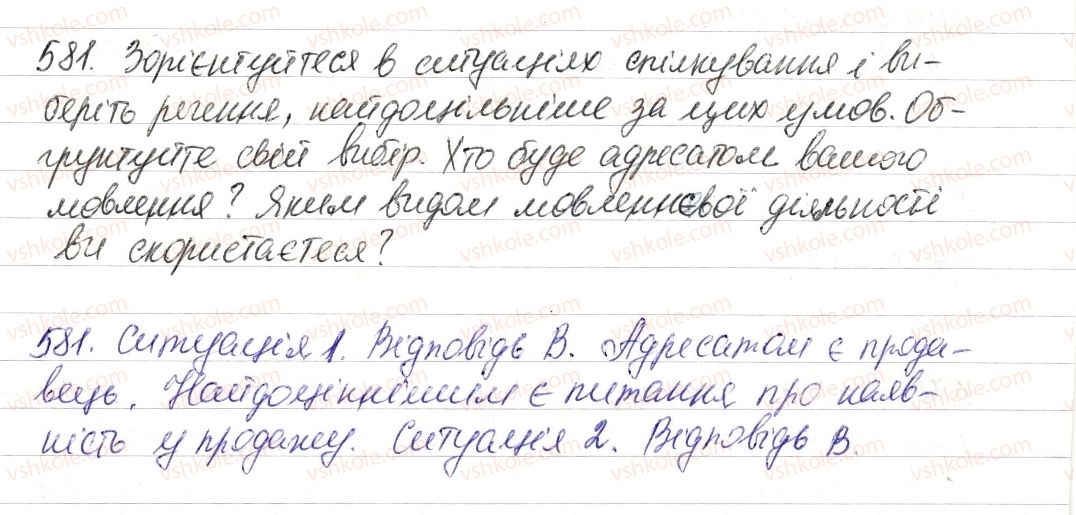 581. Зорієнтуйтеся в ситуаціях спілкування і ви-
беріть речення, найдоцільніше за цих умов. Об-
ґрунтуйте свій вибір. Хто буде адресатом вашого
мовлення? Яким видом мовленнєвої діяльності
ви скористаєтеся?
581. Ситуація 1. Відповідь В. Адресатом є прода-
вець. Найдоціннішим є питання про наяв-
ність у продажу. Ситуація 2. Відповідь В.